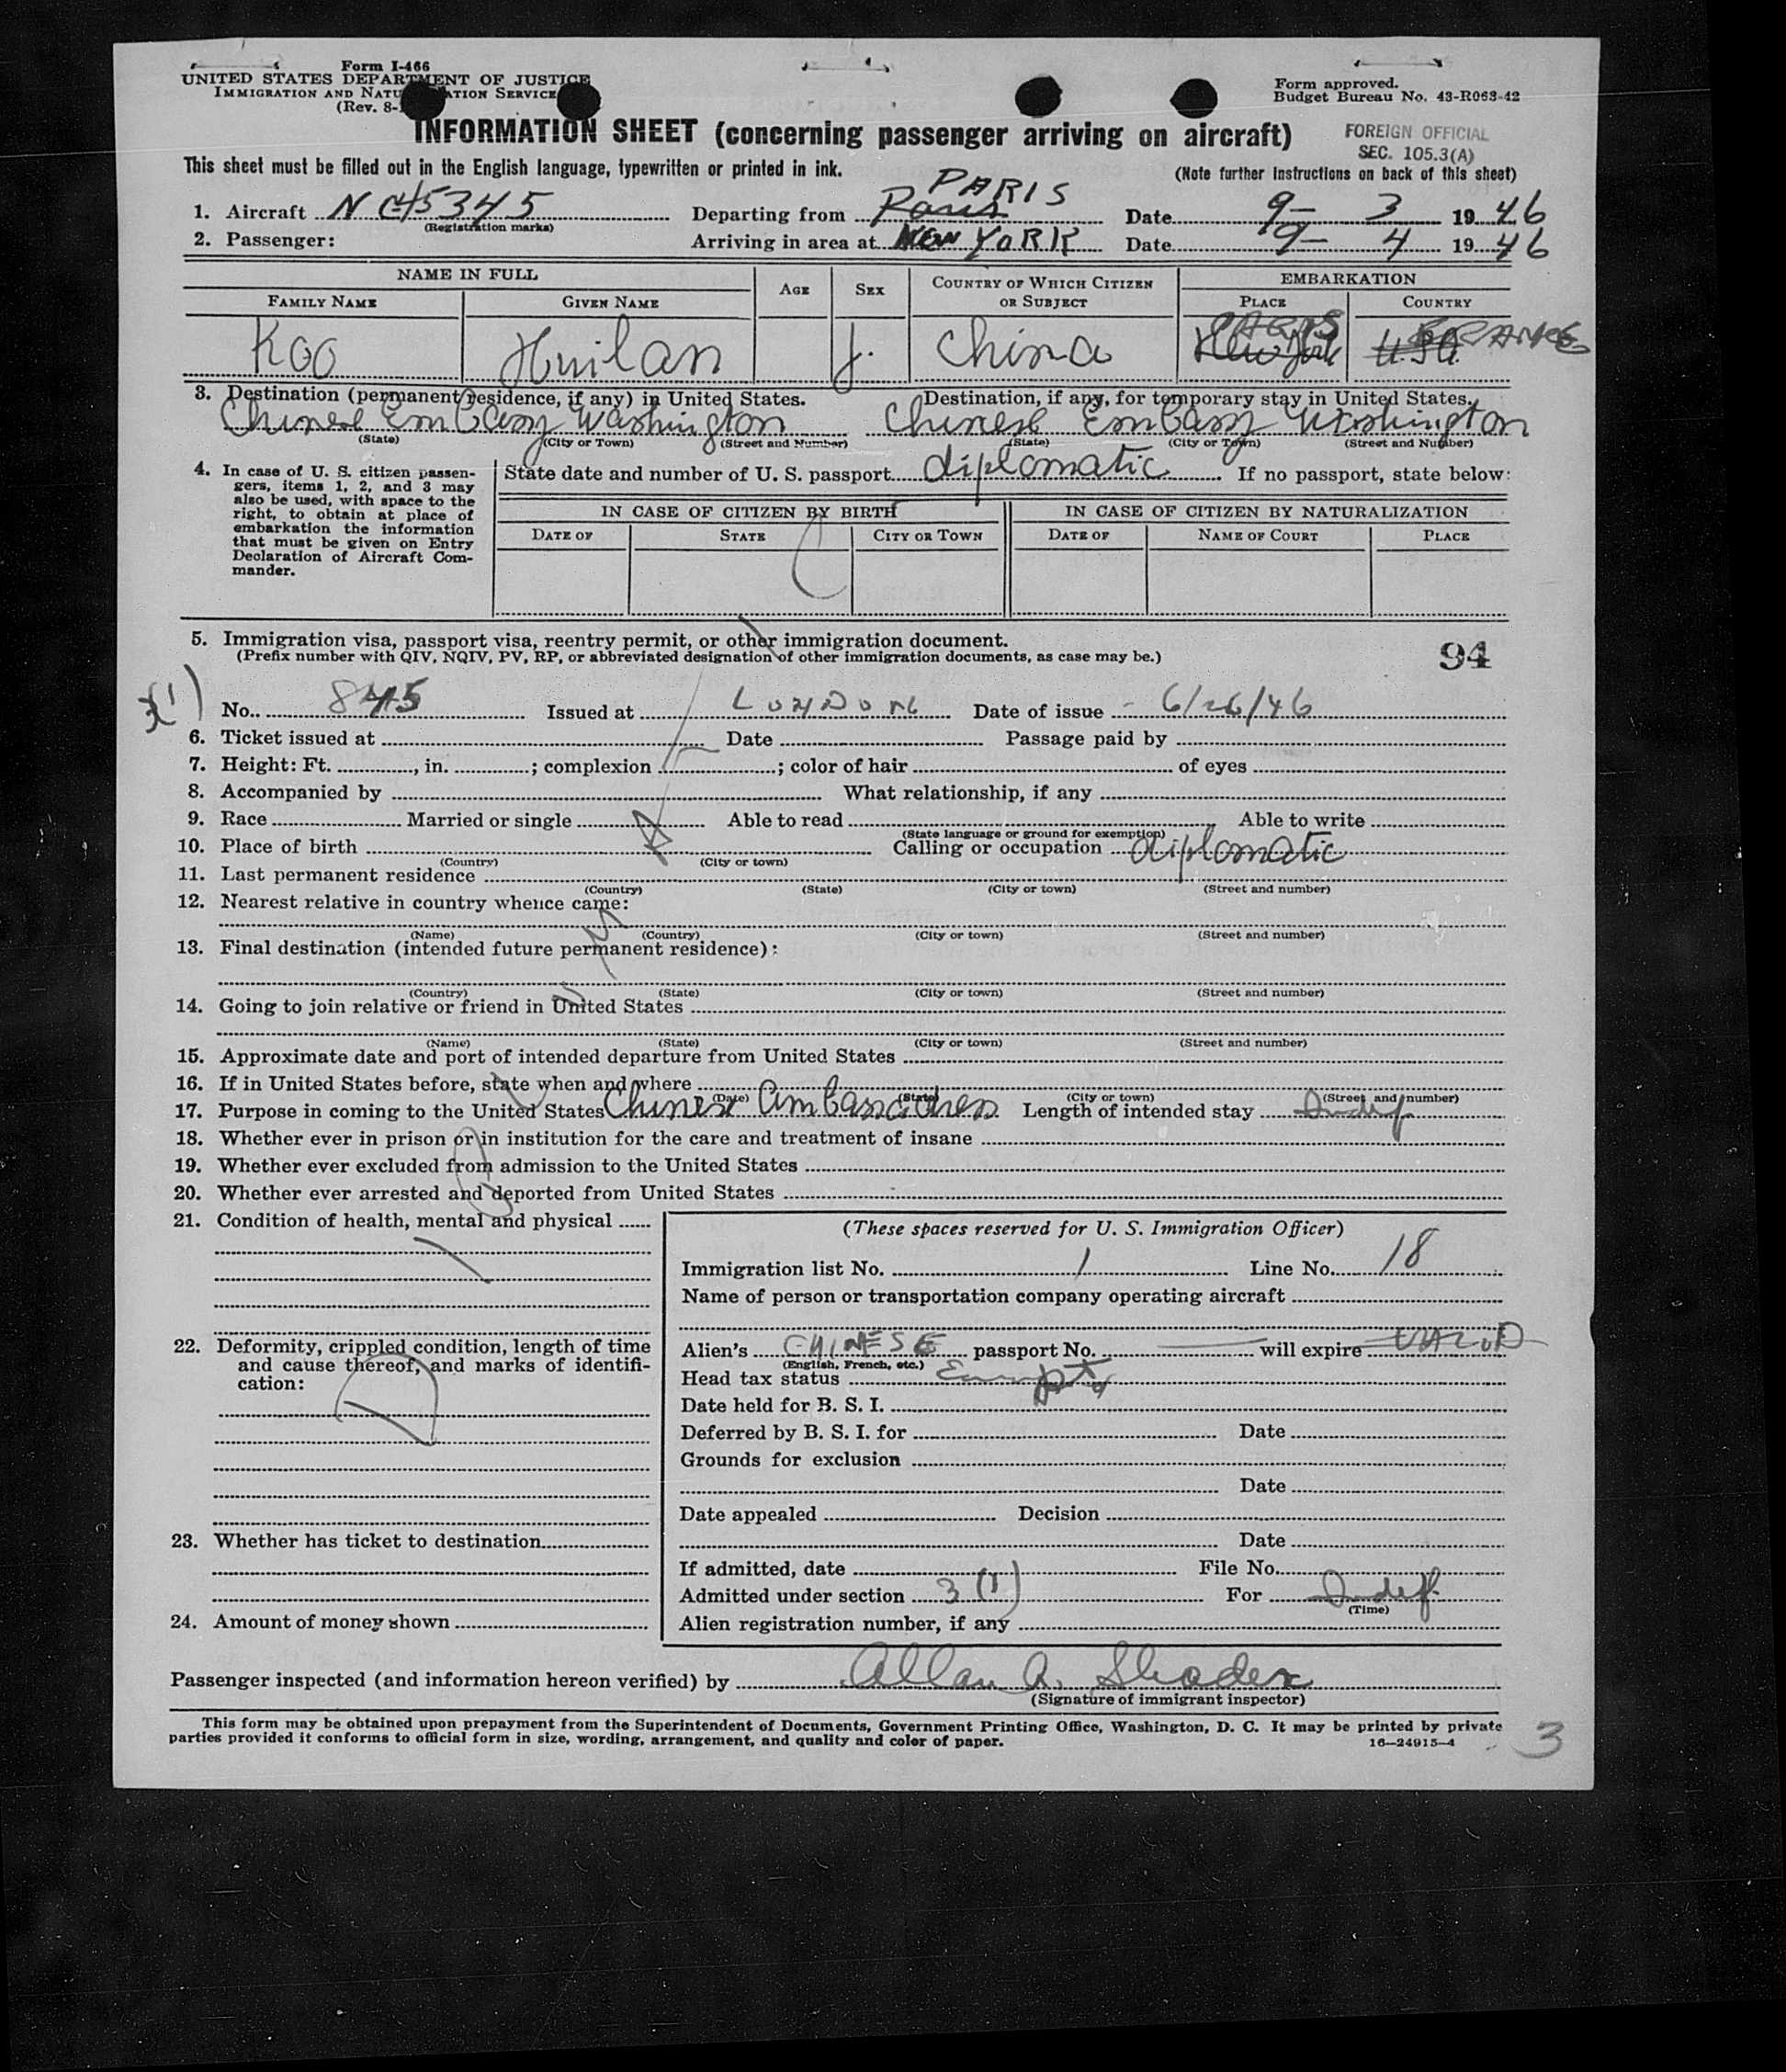 Form I-466
UNITED STATES DEPARTMENT OF JUSTICE
IMMIGRATION AND NATU ATION SERVICE
(Rev. 8-
Form approved.
Budget Bureau No. 43-R063-42
INFORMATION SHEET (concerning passenger arriving on aircraft)
FOREIGN OFFICIAL
SEC. 105.3(A)
This sheet must be filled out in the English language, typewritten or printed in ink.
(Note further instructions on back of this sheet)
PARIS
1. Aircraft NC45345 Departing from Paris Date 9- 3 1946
(Registration marks)
2. Passenger: Arriving in area at NEW YORK Date 9- 4 1946
NAME IN FULL AGE SEX COUNTRY OF WHICH CITIZEN OR SUBJECT EMBARKATION
FAMILY NAME GIVEN NAME PLACE COUNTRY
PARIS FRANCE
Koo Huilan f. China New York U.S.A.
3. Destination (permanent residence, if any) in United States. Destination, if any, for temporary stay in United States.
Chinese Embassy Washington Chinese Embassy Washington
(State) (City or Town) (Street and Number) (State) (City or Town) (Street and Number)
4. In case of U. S. citizen passen-
gers, items 1, 2, and 3 may
also be used, with space to the
right, to obtain at place of
embarkation the information
that must be given on Entry
Declaration of Aircraft Com-
mander.
State date and number of U. S. passport diplomatic If no passport, state below:
IN CASE OF CITIZEN BY BIRTH IN CASE OF CITIZEN BY NATURALIZATION
DATE OF STATE CITY OR TOWN DATE OF NAME OF COURT PLACE
5. Immigration visa, passport visa, reentry permit, or other immigration document.
(Prefix number with QIV, NQIV, PV, RP, or abbreviated designation of other immigration documents, as case may be.)
94
3(1)
No. 845 Issued at LONDON Date of issue 6/26/46
6. Ticket issued at Date Passage paid by
7. Height: Ft. , in. ; complexion ; color of hair of eyes
8. Accompanied by What relationship, if any
9. Race Married or single Able to read Able to write
(State language or ground for exemption)
10. Place of birth Calling or occupation diplomatic
(Country) (City or town)
11. Last permanent residence
(Country) (State) (City or town) (Street and number)
12. Nearest relative in country whence came:
(Name) (Country) (City or town) (Street and number)
13. Final destination (intended future permanent residence):
(Country) (State) (City or town) (Street and number)
14. Going to join relative or friend in United States
(Name) (State) (City or town) (Street and number)
15. Approximate date and port of intended departure from United States
16. If in United States before, state when and where
(Date) (State) (City or town) (Street and number)
17. Purpose in coming to the United States Chinese Ambassadress Length of intended stay Indef
18. Whether ever in prison or in institution for the care and treatment of insane
19. Whether ever excluded from admission to the United States
20. Whether ever arrested and deported from United States
21. Condition of health, mental and physical
22. Deformity, crippled condition, length of time
and cause thereof, and marks of identifi-
cation:
23. Whether has ticket to destination
24. Amount of money shown
(These spaces reserved for U. S. Immigration Officer)
Immigration list No. 1 Line No. 18
Name of person or transportation company operating aircraft
Alien's CHINESE passport No. — will expire VALID
(English, French, etc.)
Head tax status Exempt
Date held for B. S. I.
Deferred by B. S. I. for Date
Grounds for exclusion
Date
Date appealed Decision
Date
If admitted, date File No.
Admitted under section 3 (1) For Indef.
(Time)
Alien registration number, if any
Passenger inspected (and information hereon verified) by Allan A. Shader
(Signature of immigrant inspector)
This form may be obtained upon prepayment from the Superintendent of Documents, Government Printing Office, Washington, D. C. It may be printed by private
parties provided it conforms to official form in size, wording, arrangement, and quality and color of paper.
16—24915-4
3